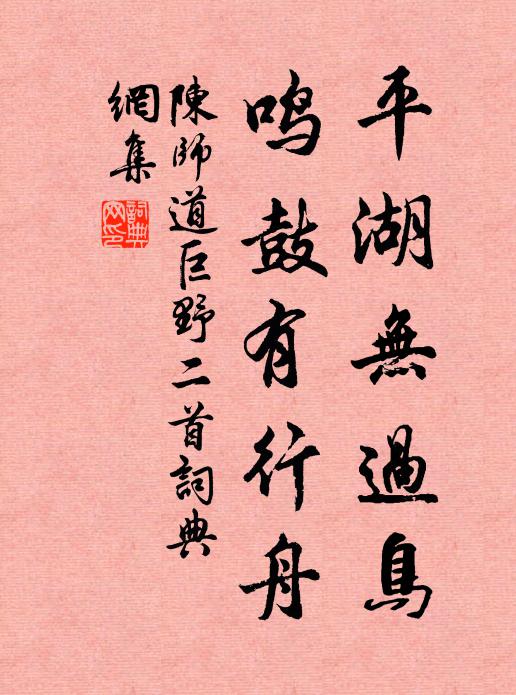 平湖無過鳥
鳴鼓有行舟
陳師道巨野二首詞典
網集
詞典
网印